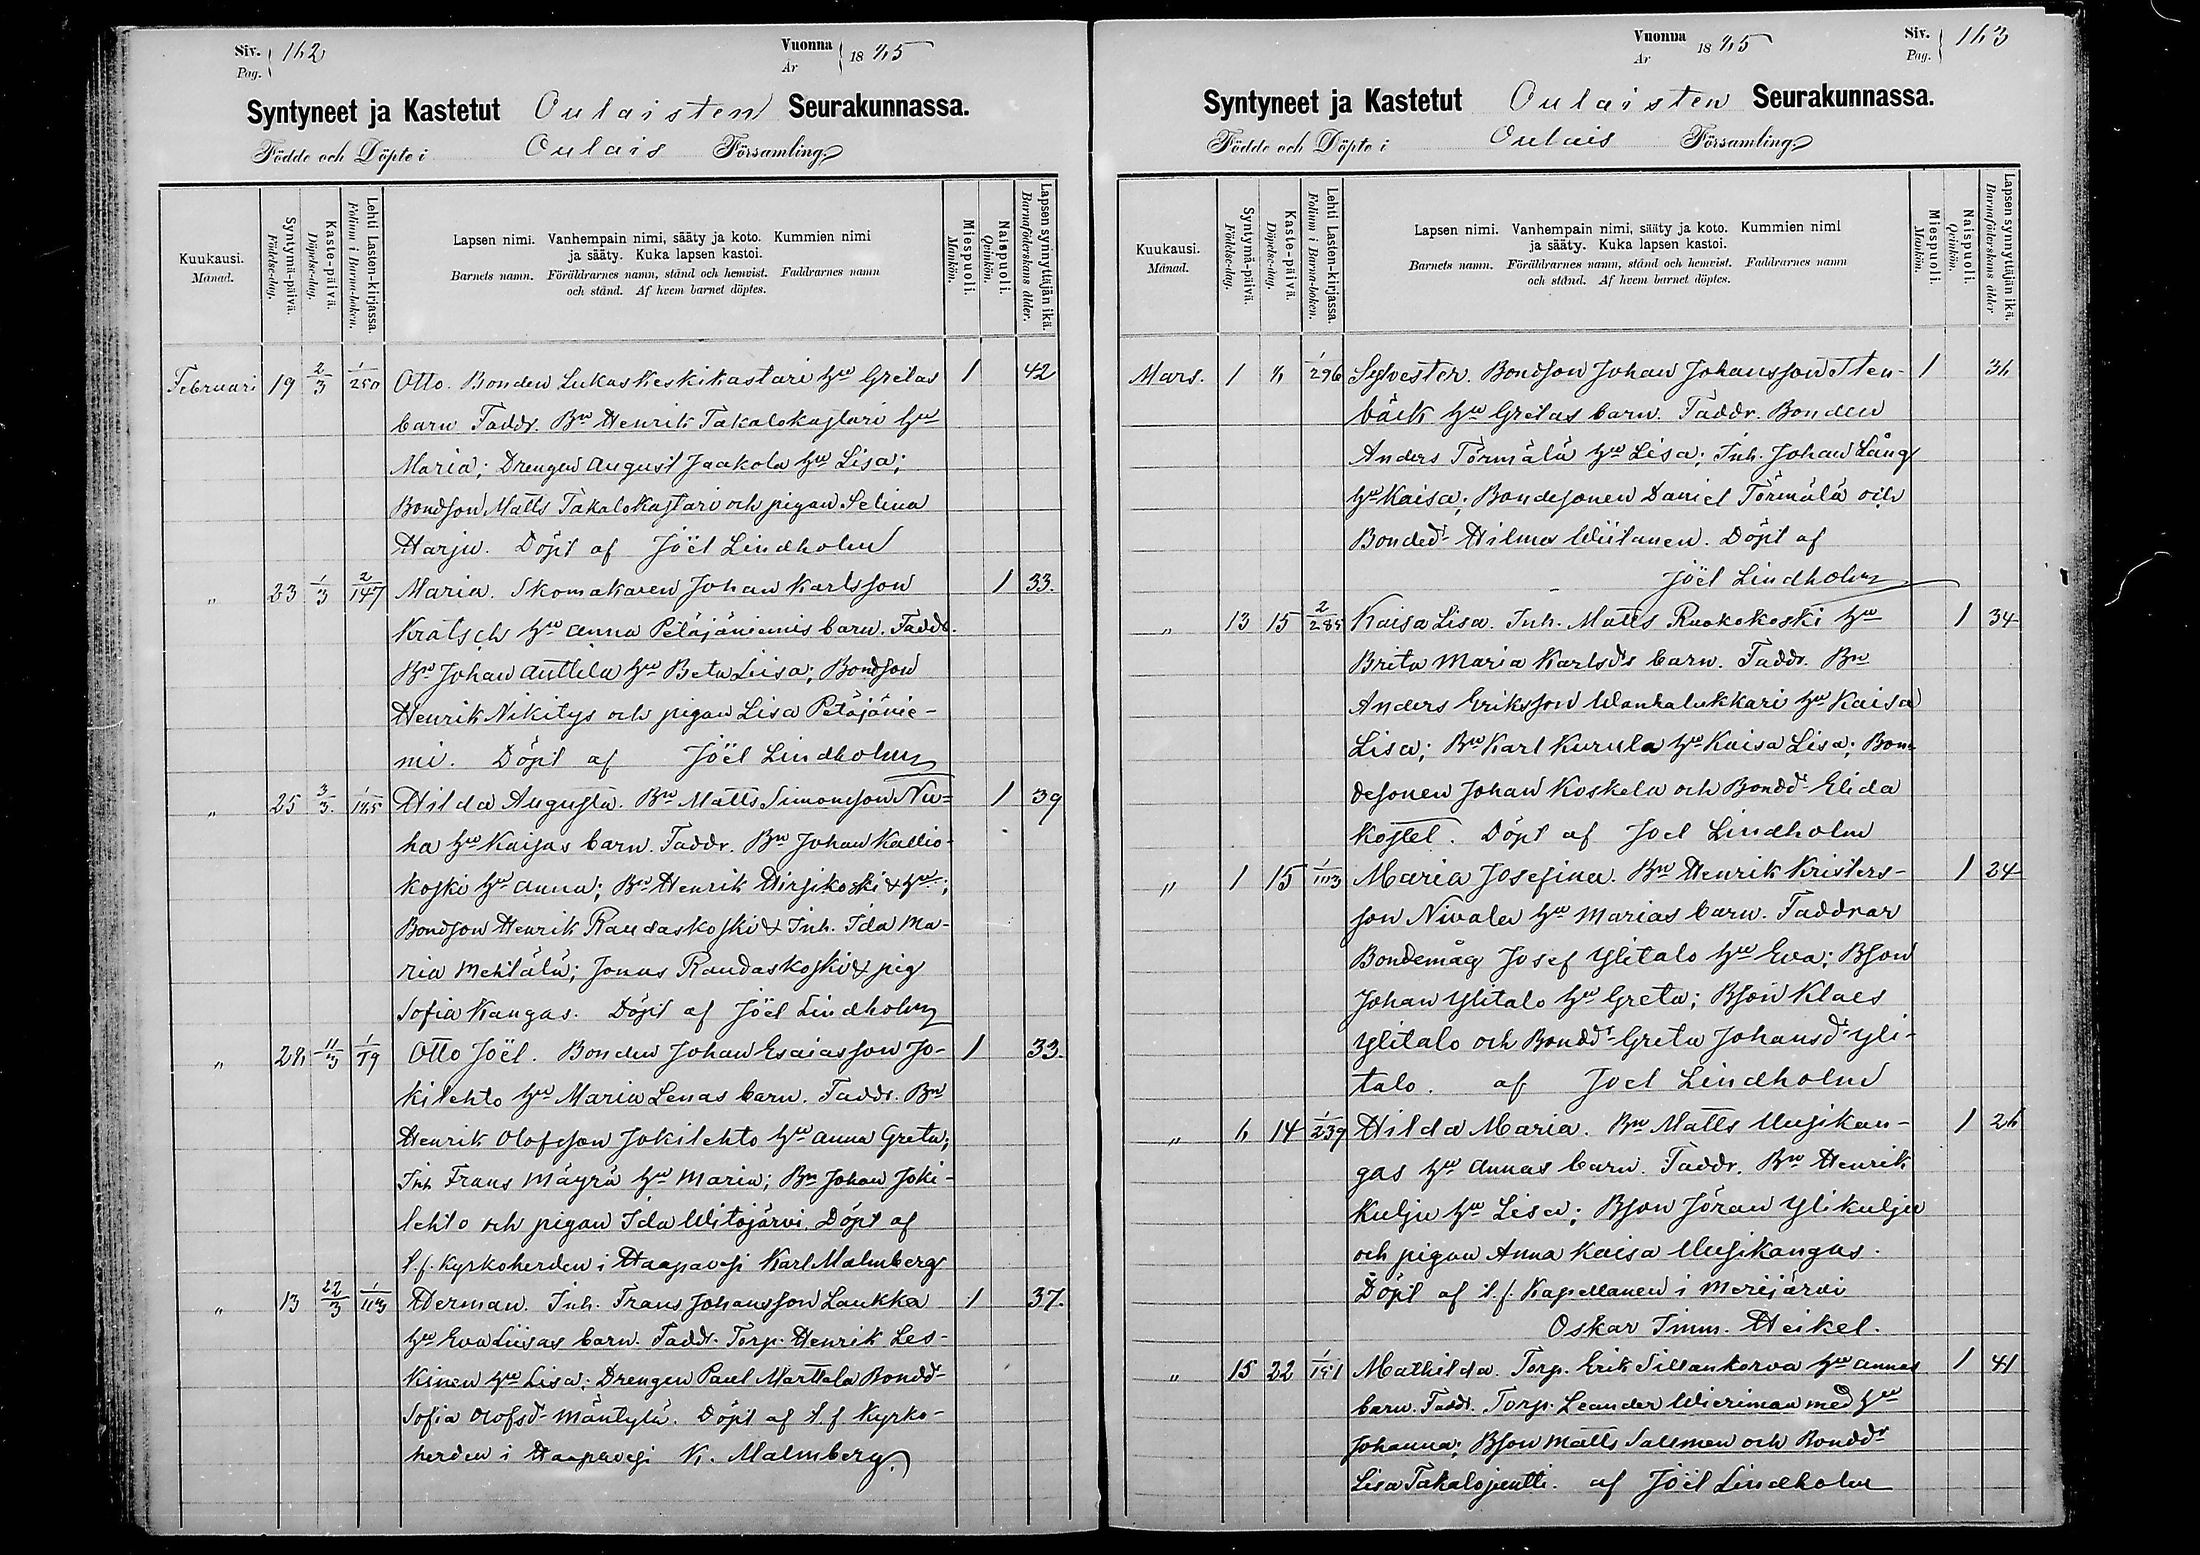 Siv. 162
Pag.
Vuonna 1885
År
Syntyneet ja Kastetut Oulaisten Seurakunnassa.
Födde och Döpte i Oulais Församling
Kuukausi.
Månad.
Syntymä-päivä.
Födelse-dag.
Kaste-päivä.
Döpelse-dag.
Lehti Lasten-kirjassa.
Folium i Barna-boken.
Lapsen nimi. Vanhempain nimi, sääty ja koto. Kummien nimi
ja sääty. Kuka lapsen kastoi.
Barnets namn. Föräldrarnes namn, stånd och hemvist. Faddrarnes namn
och stånd. Af hvem barnet döptes.
Miespuoli.
Mankön.
Naispuoli.
Qvinkön.
Lapsen synnyttäjän ikä.
Barnaföderskans ålder.
Februari 19 2/3 1/250 Otto. Bonden Lukas Keskikastari hu Gretas 1 42
barn Faddr. Bn Henrik Takalokastari hu
Maria; Drengen August Jaakola hu Lisa;
Bondson Matts Takalokastari och pigan Selina
Harju. Döpt af Joël Lindholm
" 23 1/3 2/147 Maria. Skomakaren Johan Karlsson 1 33.
Kratsch hu Anna Petäjäniemis barn. Faddr.
Bn Johan Anttila hu Beta Liisa; Bondson
Henrik Nikitys och pigan Lisa Petäjänie-
mi. Döpt af Joël Lindholm
" 25 3/3 Hilda Augusta. Bn Matts Simonsson Nu= 1 39
ha hu Kaisas barn. Faddr. Bn Johan Kallio-
koski hu Anna; Bn Henrik Hirsikoski & hu;
Bondson Henrik Raudaskoski & Inh. Ida Ma-
ria Mehtälä; Jonas Raudaskoski & pig
Sofia Kangas. Döpt af Joël Lindholm
" 28 11/3 1/19 Otto Joël. Bonden Johan Esaiasson Jo- 1 33.
kilehto hu Maria Lenas barn. Faddr. Bn
Henrik Olofsson Jokilehto hu Anna Greta;
Inh Frans Mäyrä hu Maria; Bn Johan Joki-
lehto och pigan Ida Witojärvi. Döpt af
t.f. Kyrkoherden i Haapavesi Karl Malmberg
" 13 22/3 1/113 Herman. Inh. Frans Johansson Laukka 1 37.
hu Eva Liisas barn. Faddr. Torp. Henrik Les-
kinen hu Lisa; Drengen Paul Marttala Bondd-
Sofia Olofsd- Mäntylä. Döpt af t.f Kyrko-
herden i Haapavesi K. Malmberg.
Vuonna 1885
År
Siv. 163
Pag.
Syntyneet ja Kastetut Oulaisten Seurakunnassa.
Födde och Döpte i Oulais Församling
Kuukausi.
Månad.
Syntymä-päivä.
Födelse-dag.
Kaste-päivä.
Döpelse-dag.
Lehti Lasten-kirjassa.
Folium i Barna-boken.
Lapsen nimi. Vanhempain nimi, sääty ja koto. Kummien nimi
ja sääty. Kuka lapsen kastoi.
Barnets namn. Föräldrarnes namn, stånd och hemvist. Faddrarnes namn
och stånd. Af hvem barnet döptes.
Miespuoli.
Mankön.
Naispuoli.
Qvinkön.
Lapsen synnyttäjän ikä.
Barnaföderskans ålder
Mars. 1 1/296 Sylvester. Bondson Johan Johansson Sten- 1 36
bäck hu Gretas barn. Faddr. Bonden
Anders Törmälä hu Lisa; Inh. Johan Lång
hu Kaisa; Bondesonen Daniel Törmälä och
Bondedr Hilma Wiitanen. Döpt af
Joël Lindholm
" 13 15 2/285 Kaisa Lisa. Inh. Matts Ruokokoski hu 1 34
Brita Maria Karlsdrs barn. Faddr. Bn
Anders Eriksson Wanhalukkari hu Kaisa
Lisa; Bn Karl Kurula hu Kaisa Lisa; Bon-
desonen Johan Koskela och Bondd- Elida
Kostet. Döpt af Joel Lindholm
" 1 15 Maria Josefina. Bn Henrik Kristers- 1 24
son Nivala hu Marias barn. Faddrar
Bondemåg Josef Ylitalo hu Eva; Bson
Johan Ylitalo hu Greta; Bson Klaes
Ylitalo och Bonddr Greta Johansdr Yli-
talo. af Joel Lindholm
" 6 14 1/239 Hilda Maria. Bn Matts Uusikan- 1 26
gas hu Annas barn. Faddr. Bn Henrik
Kulju hu Lisa; Bson Jöran Ylikulju
och pigan Anna Kaisa Uusikangas.
Döpt af t.f. Kapellanen i Merijärvi
Oskar Imm. Heikel.
" 15 22 Mathilda. Torp. Erik Sillankorva hu Annas 1 41
barn. Faddr. Torp. Leander Wierimaa med hu
Johanna; Bson Matts Salmen och Bonddr
Lisa Takalopentti. af Joël Lindholm